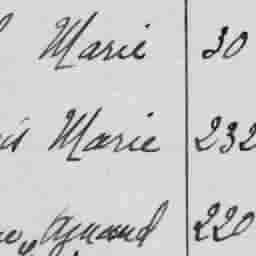 Marie 30
Marie 232
Amand 220